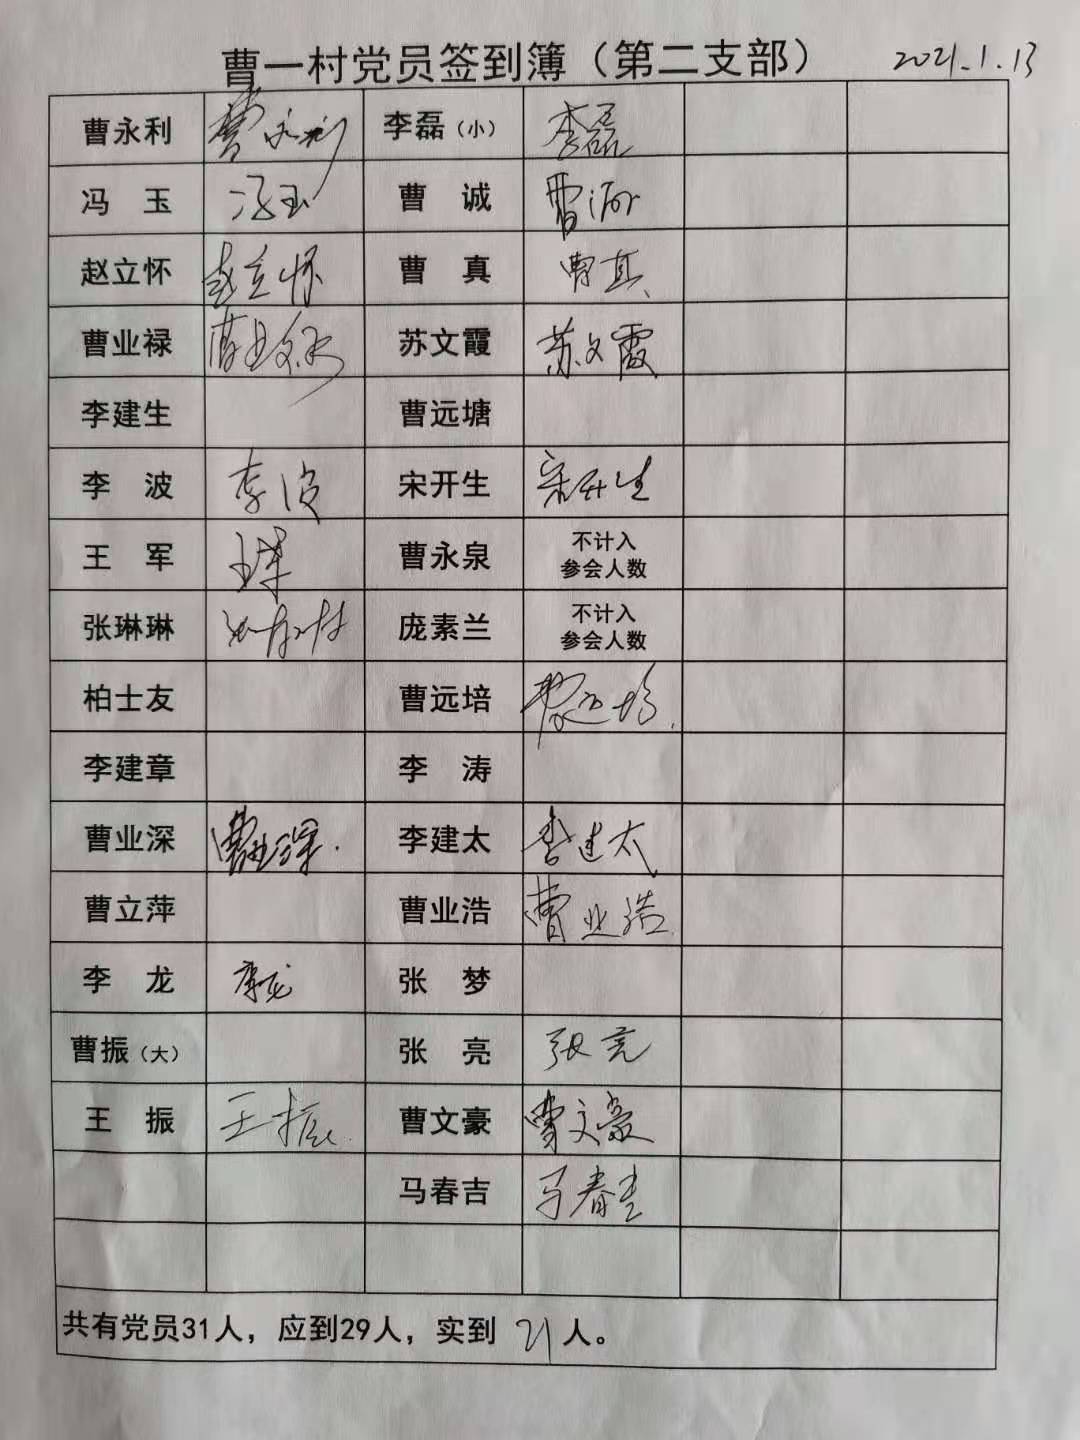 曹一村党员签到簿（第二支部） 2021.1.13
曹永利 曹永利 李磊（小） 李磊
冯 玉 冯玉 曹 诚 曹诚
赵立怀 赵立怀 曹 真 曹真
曹业禄 曹业禄 苏文霞 苏文霞
李建生 曹远塘
李 波 李波 宋开生 宋开生
王 军 王军 曹永泉 不计入
参会人数
张琳琳 张琳琳 庞素兰 不计入
参会人数
柏士友 曹远培 曹远培
李建章 李 涛
曹业深 曹业深 李建太 李建太
曹立萍 曹业浩 曹业浩
李 龙 李龙 张 梦
曹振（大） 张 亮 张亮
王 振 王振 曹文豪 曹文豪
马春吉 马春吉
共有党员31人，应到29人，实到 21 人。